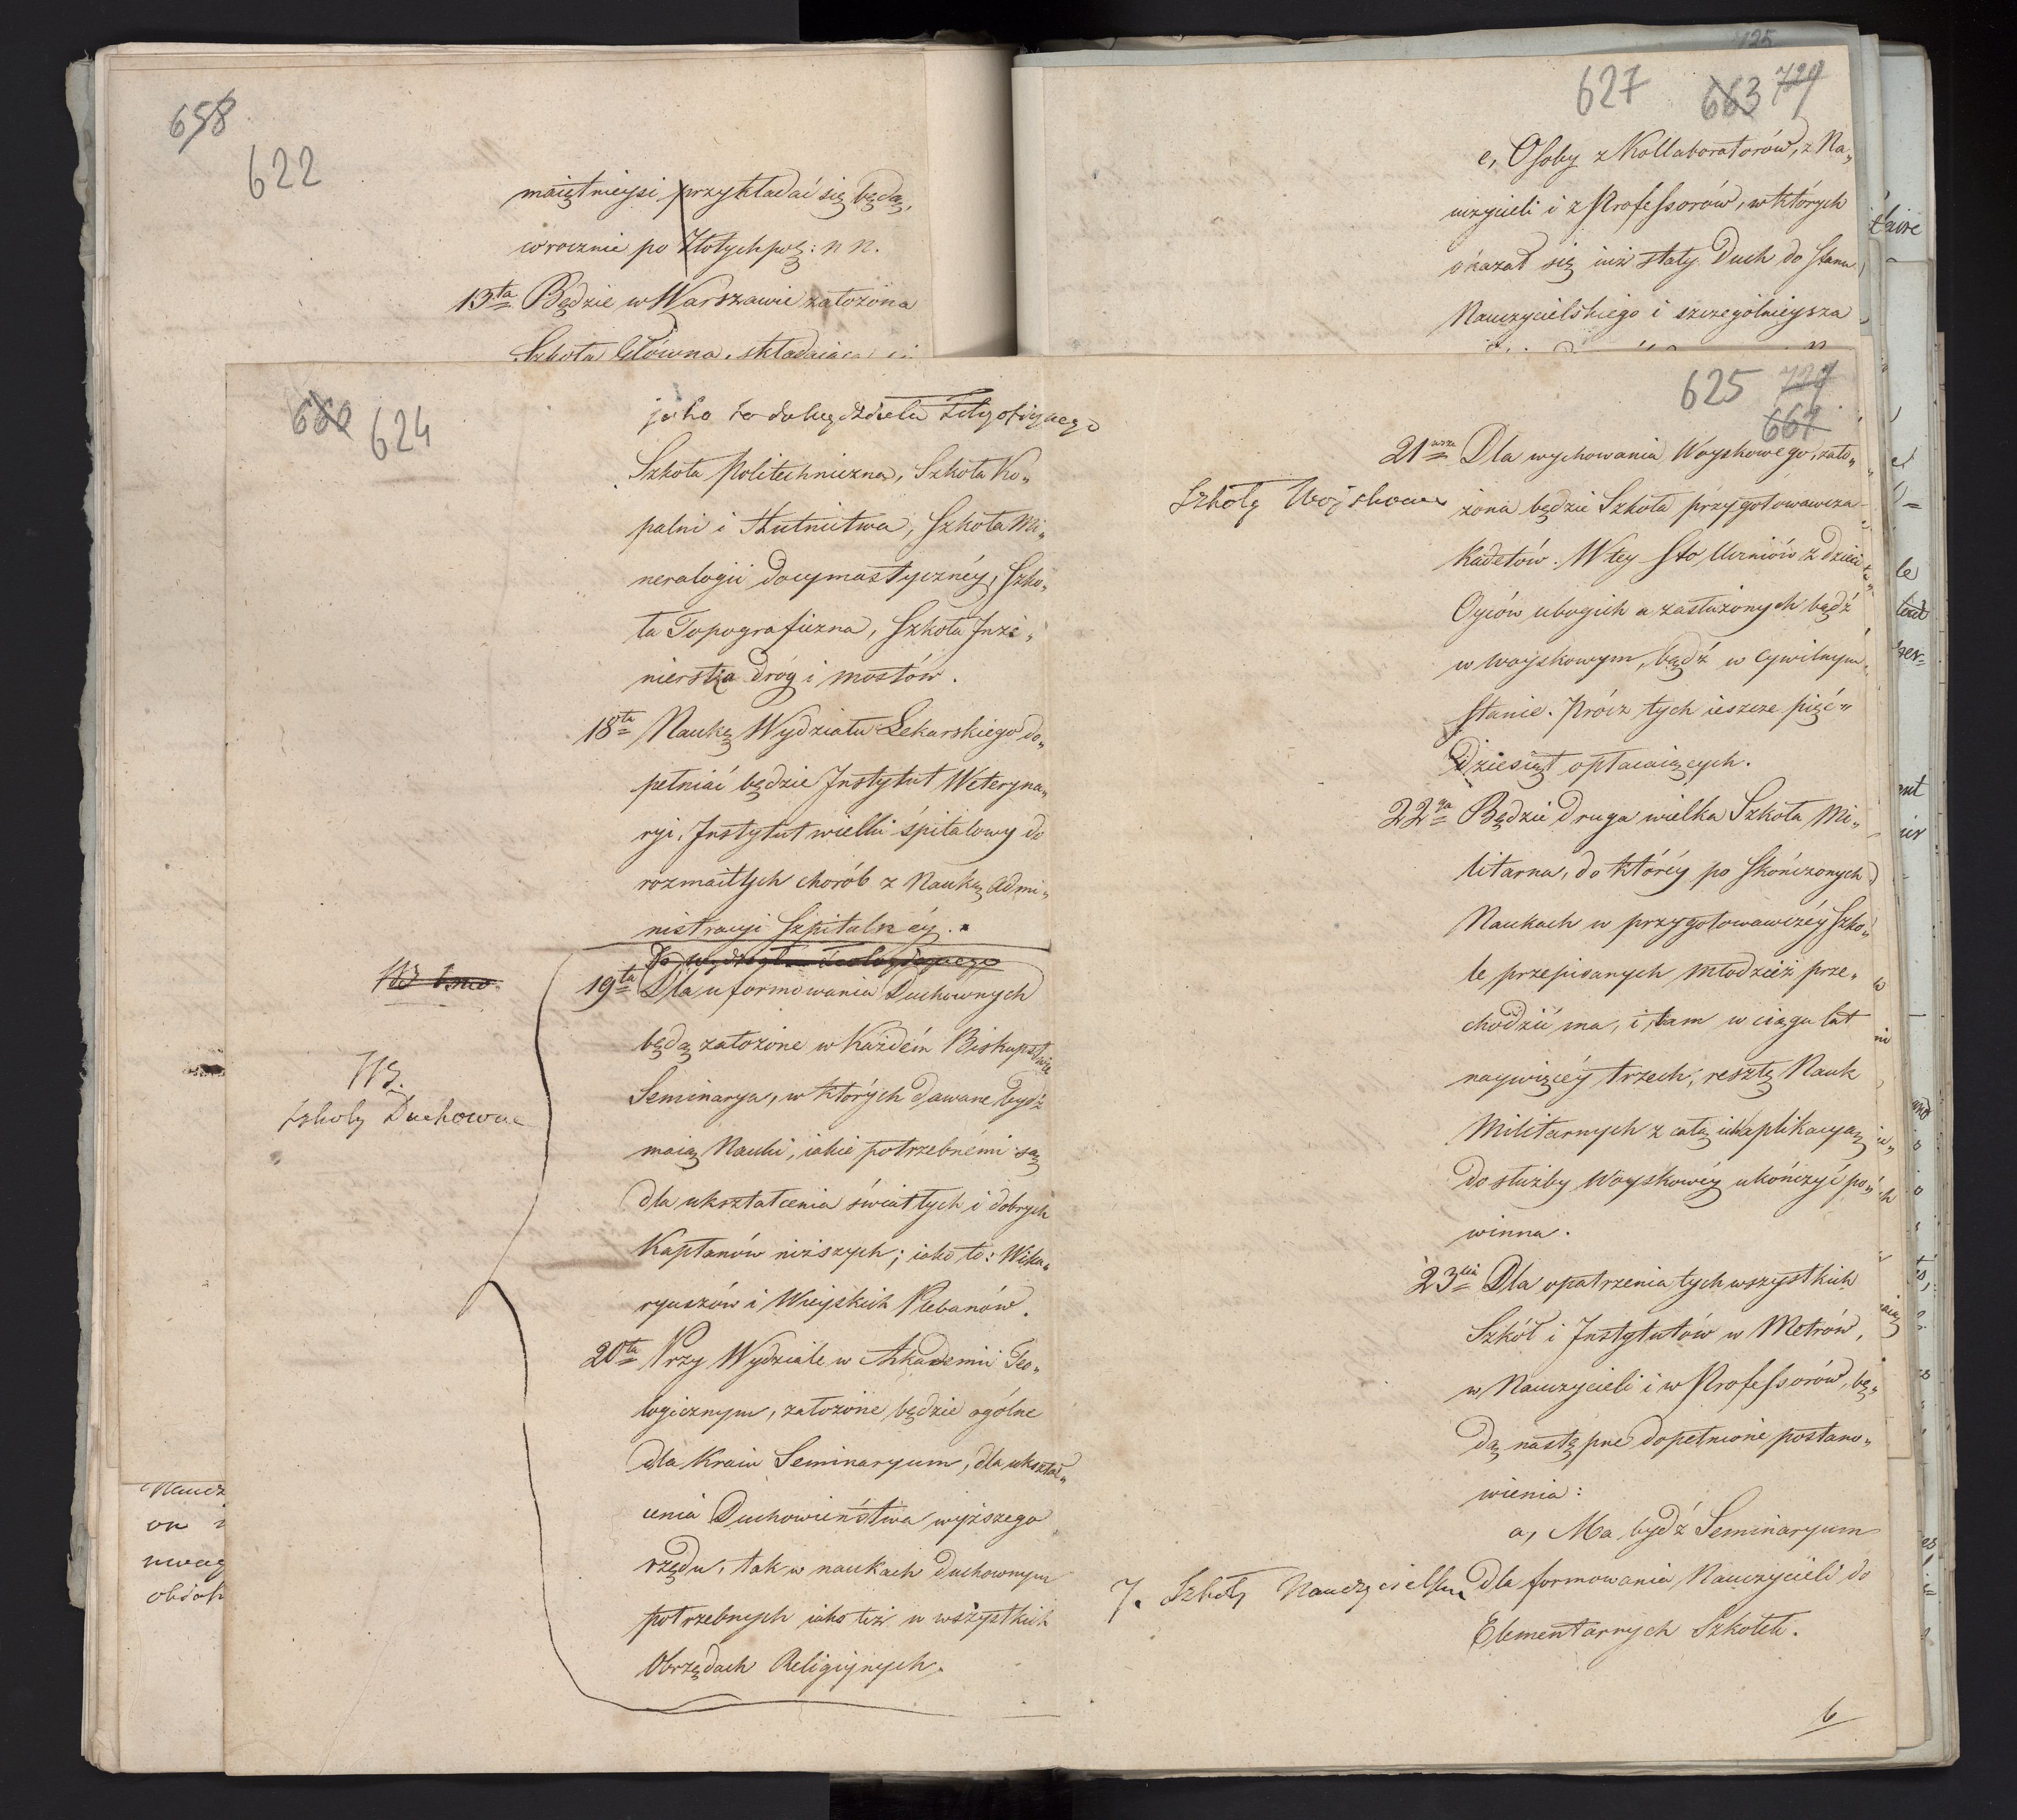 658
622
maiętnieysi przykładać się będą,
corocznie po Złotych pol: n n.
13ta Będzie w Warszawie założona
Szkoła Główna, składaiąca
627 663 729
e, Osoby z Kollaboratorów, z Na„
uczycieli i z Professorów, w których
okazał się iuż stały Duch do stanu
Nauczycielskiego i szczególnieysza
660 624
jako to do
Szkoła Politechniczna, Szkoła Ko„
palni i Hutnictwa, Szkoła Mi„
neralogii docymastycznéy, Szko„
ła Topograficzna, Szkoła Inże„
nierska dróg i mostów.
18ta Naukę Wydziału Lekarskiego do„
pełniać będzie Instytut Weteryna„
ryi, Instytut wielki śpitalowy do
rozmaitych chorób z Nauką Admi„
nistracyi Szpitalnéy.
Do wydziału Teologicznego
19ta Dla uformowania Duchownych
będą założone w każdém Biskupstwie
Seminarya, w których dawane bydź
maią Nauki, iakie potrzebnémi są
dla ukształcenia światłych i dobrych
Kapłanów niższych; iako to: Wika„
ryuszów i Wieyskich Plebanów.
NB.
szkoły Duchowne
20ta Przy Wydziale w Akademii Teo„
logicznym, założone będzie ogólne
dla Kraiu Seminaryum, dla ukształ„
cenia Duchowieństwa wyższego
rzędu, tak w naukach duchownym
potrzebnych iako też w wszystkich
Obrzędach Religiynych.
625 727
661
21wsza Dla wychowania Woyskowego, zało„
Szkoły Wojskowe
żona będzie Szkoła przygotowawcza
Kadetów. W tey sto Uczniów z dzieci
Oyców ubogich a zasłużonych bądź
w woyskowym, bądź w Cywilnym
stanie. Prócz tych ieszcze pięć„
dziesiąt opłacaiących.
22ga Będzie druga wielka Szkoła Mi„
litarna, do któréy po skończonych
Naukach w przygotowawczéy Szko„
le przepisanych młodzież prze„
chodzić ma, i tam w ciągu lat
naywięcéy trzech, resztę Nauk
Militarnych z całą ich aplikacyą
do służby Woyskowéy ukończyć po„
winna.
23cia Dla opatrzenia tych wszystkich
Szkół i Instytutów w Metrów,
w Nauczycieli i w Professorów, bę„
dą następne dopełnione postano„
wienia:
a, Ma bydź Seminaryum
7. Szkoły Nauczycielskie
dla formowania Nauczycieli do
Elementarnych Szkółek.
6